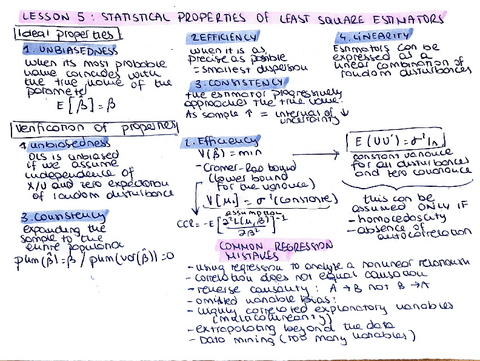 LESSON 5: STATISTICAL PROPERTIES OF LEAST SQUARE ESTIMATORS
Ideal properties
1. UNBIASEDNESS
when its most probable
value coincides with
the true value of the
parameter
E[β̂]=β
2. EFFICIENCY
when it is as
precise as possible
= smallest dispersion
3. CONSISTENCY
the estimator progressively
approaches the true value.
As sample ↑ = interval of uncertainty ↓
4. LINEARITY
Estimators can be
expressed as a
linear combination of
random disturbances
Verification of properties
1. unbiasedness
OLS is unbiased
if we assume
independence of
X/U and zero expectation
of random disturbance
3. Consistency
expanding the
sample to the
entire population
plim(β̂)=β / plim(var(β̂))=0
2. Efficiency
V(β̂) = min
- Cramer-Rao bound
(lower bound
for the variance)
V[μ] = σ²(constant)
assumption
CCR = -E[∂²L(μ,β)/∂β²]⁻¹
E(UU') = σ²In
constant variance
for all disturbances
and zero covariance
this can be
assumed ONLY IF
- homoscedasticity
- absence of
autocorrelation
COMMON REGRESSION
MISTAKES
- using regression to analyze a nonlinear relationship
- correlation does not equal causation
- reverse causality: A → B not B → A
- omitted variable bias:
- highly correlated explanatory variables
(multicollinearity)
- extrapolating beyond the data
- Data mining (too many variables)